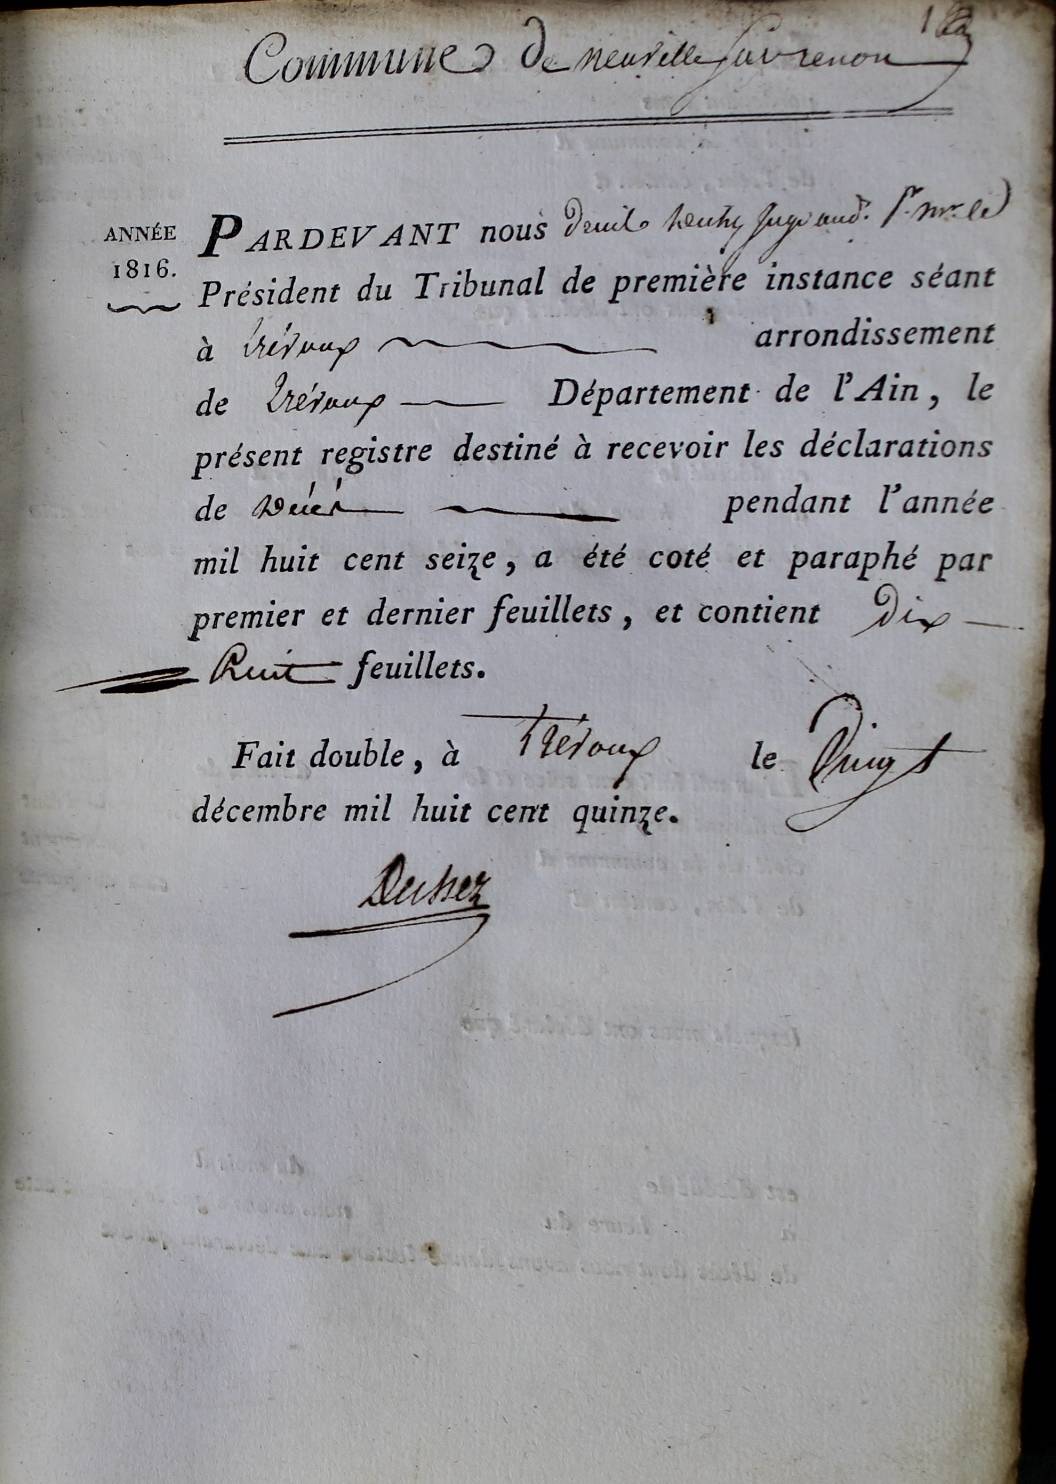 Commune De neuville sur renon
ANNÉE
1816.
PARDEVANT nous
Président du Tribunal de première instance séant
à trévoux arrondissement
de trévoux Département de l'Ain, le
présent registre destiné à recevoir les déclarations
de Décès pendant l'année
mil huit cent seize, a été coté et paraphé par
premier et dernier feuillets, et contient Dix
huit feuillets.
Fait double, à trévoux le Vingt
décembre mil huit cent quinze.